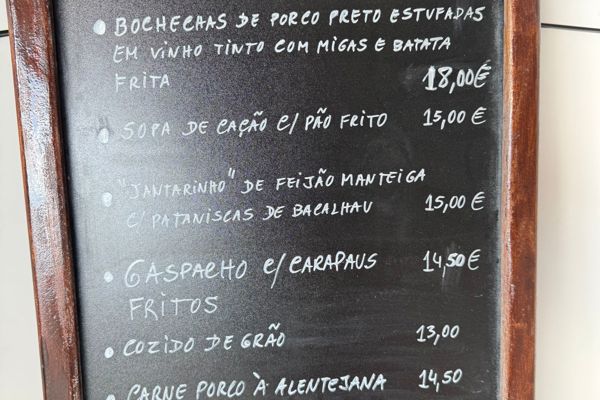 BOCHECHAS DE PORCO PRETO ESTUFADAS
EM VINHO TINTO COM MIGAS E BATATA
FRITA 18,00€
SOPA DE CAÇÃO C/ PÃO FRITO 15,00€
"JANTARINHO" DE FEIJÃO MANTEIGA
C/ PATANISCAS DE BACALHAU 15,00€
GASPACHO C/ CARAPAUS 14,50€
FRITOS
COZIDO DE GRÃO 13,00
CARNE PORCO À ALENTEJANA 14,50